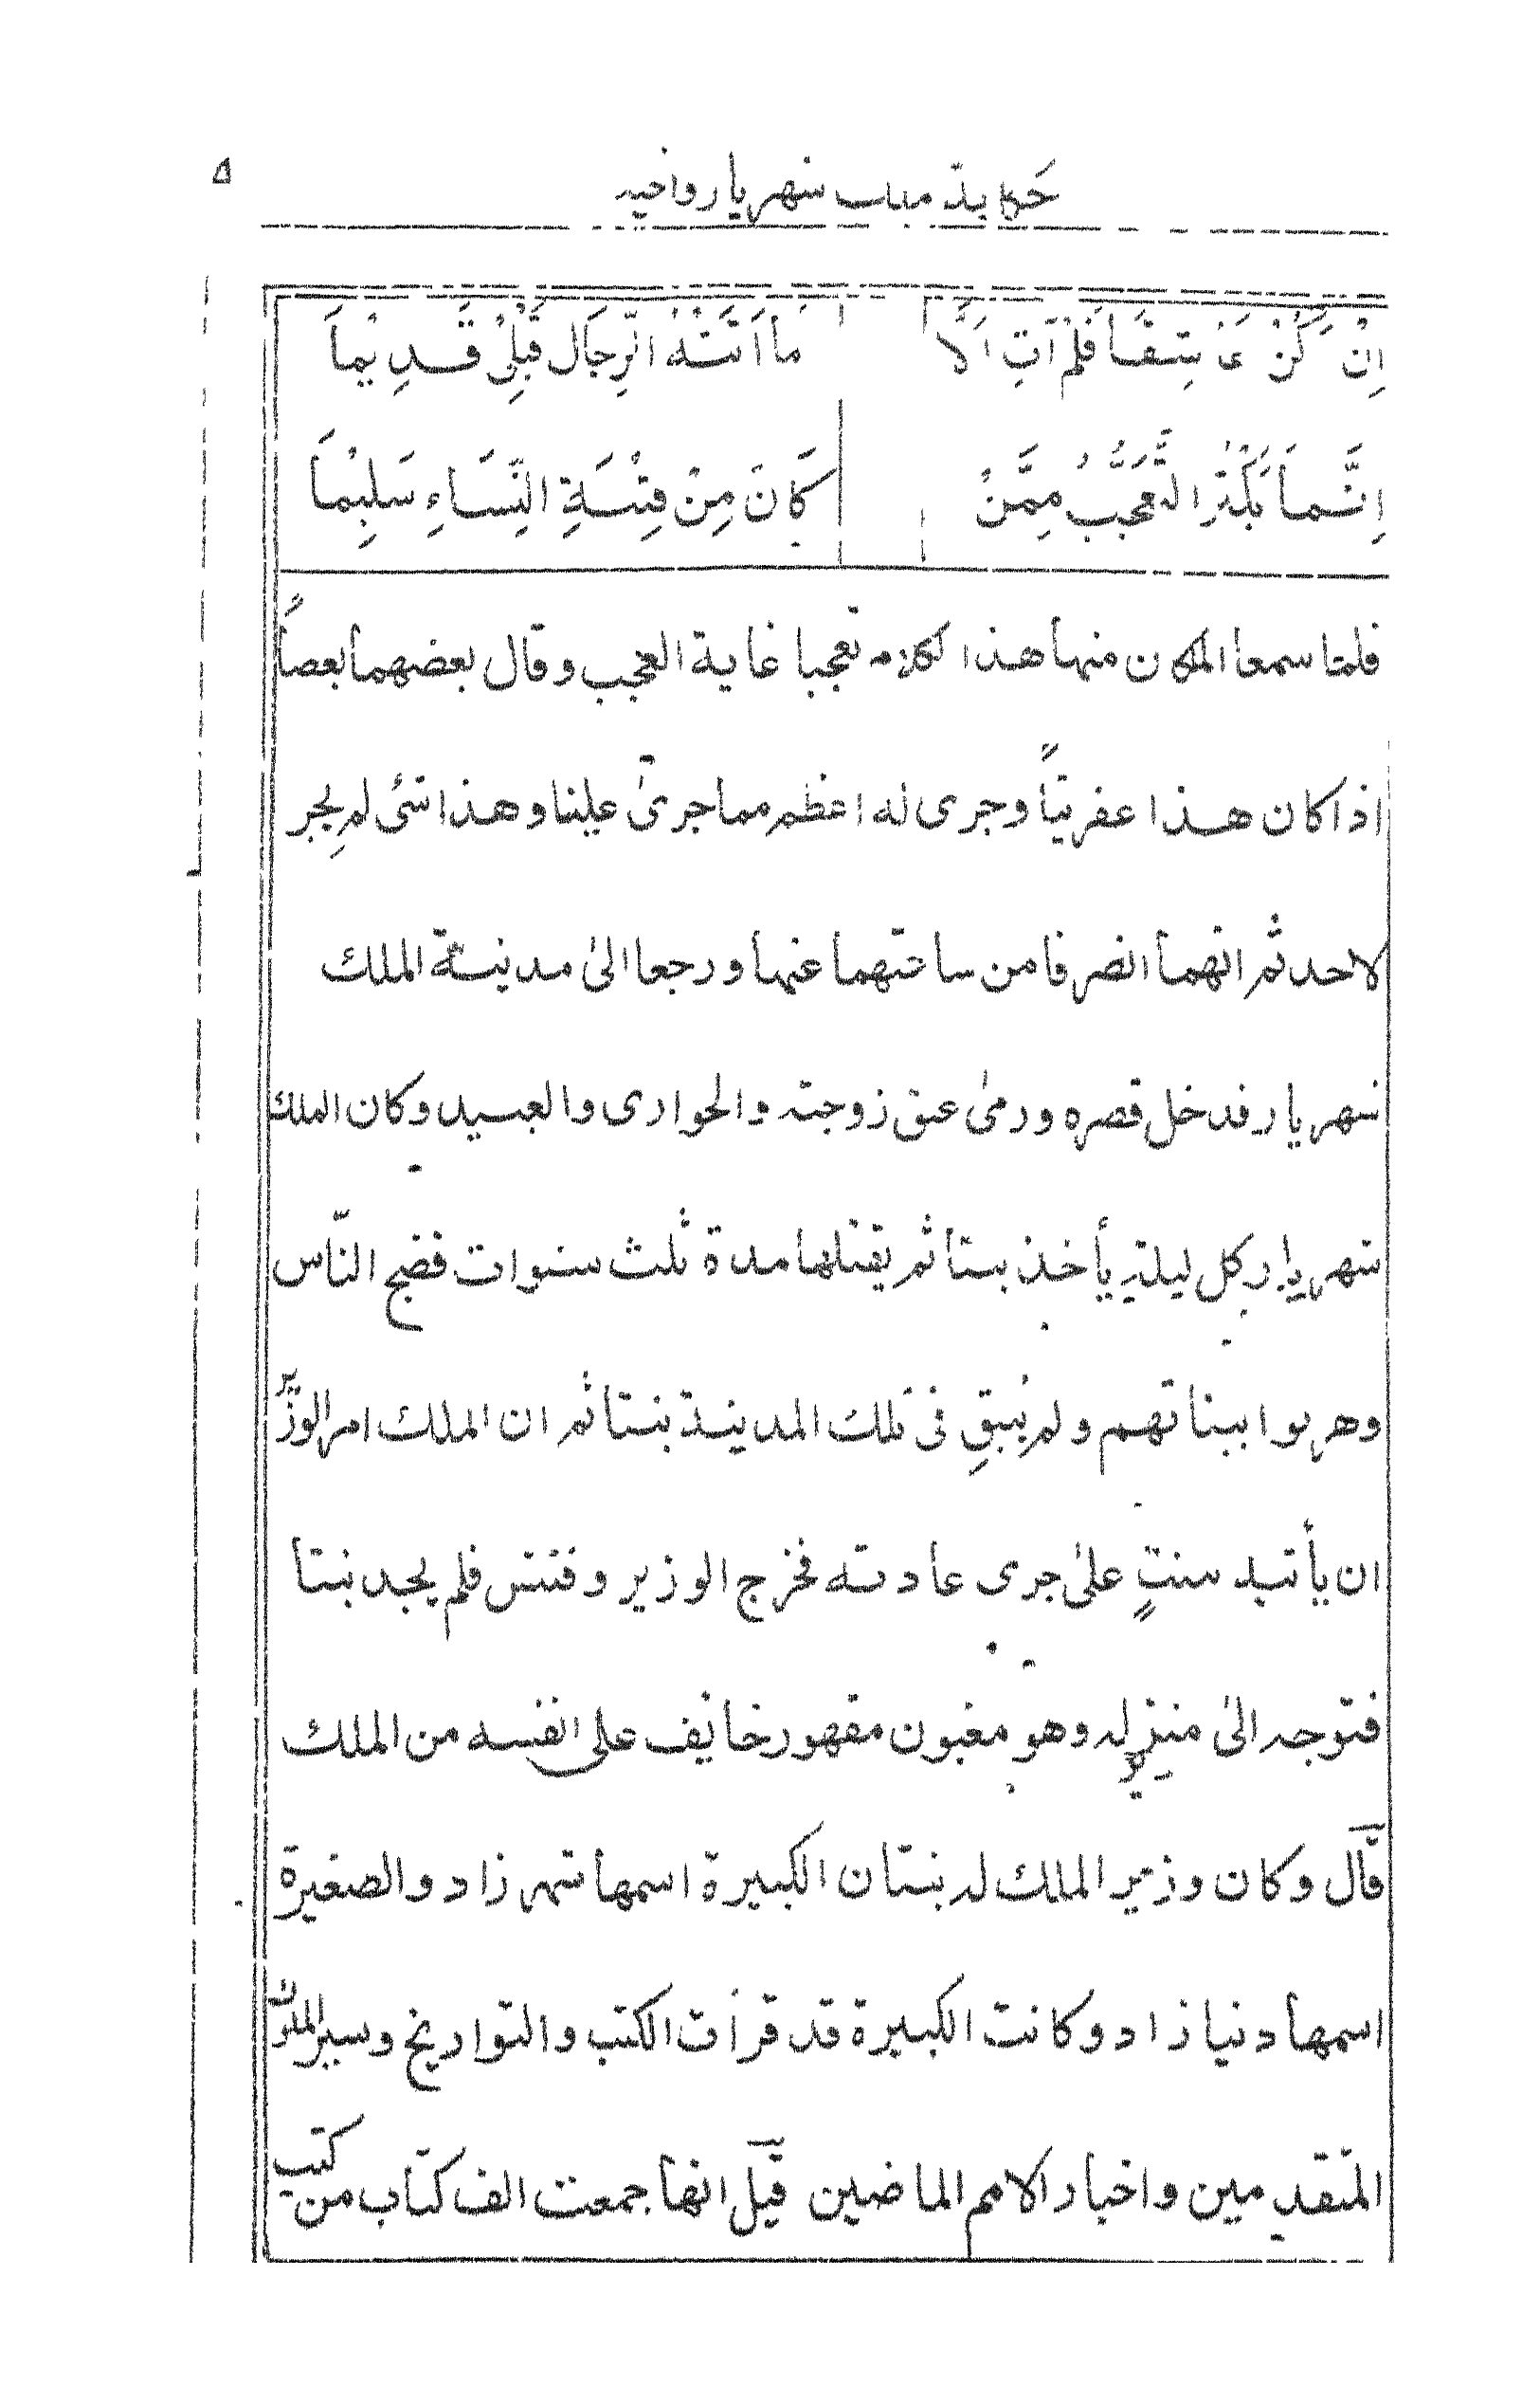 حَكاية ملك شهريار واخيه ٥
اِنْ كُنْ عَاشِقًا فَلَمْ آتِ اَلَّا مَا اَتَتْهُ الرِّجَال قَبْلِيْ قَدِيْمَا
اِنَّمَا يَكْثُر التَّعَجُّبُ مِمَّنْ كَانَ مِنْ فِتْنَةِ النِّسَاءِ سَلِيْمَا
فلمّا سمعا الملكان منها هذا الكلام تعجبا غاية العجب وقال بعضهما بعضاً
اذا كان هذا عفريتاً وجرى له اعظم مما جرىٰ علينا وهذا شئ لم يجرِ
لاحد ثم انهما انصرفا من ساعتهما عنها ورجعا الىٰ مدينة الملك
شهريار فدخل قصره ورمىٰ عنق زوجته والجوارى والعبيد وكان الملك
شهريار كل ليلة يأخذ بنتا ثم يقتلها مدة ثلث سنوات فضج النّاس
وهربوا ببناتهم ولم يُبقِ فى تلك المدينة بنتا ثم ان الملك امر الوزير
ان يأتيه بنتٍ علىٰ جرى عادته فخرج الوزير وفتش فلم يجد بنتا
فتوجه الىٰ منزله وهو مغبون مقهور خائف على انفسه من الملك
قال وكان وزير الملك له بنتان الكبيرة اسمها شهرزاد والصغيرة
اسمها دنيازاد وكانت الكبيرة قد قرأت الكتب والتواريخ وسير الملوك
المتقدمين واخبار الامم الماضين قيل انها جمعت الف كتاب من كتب